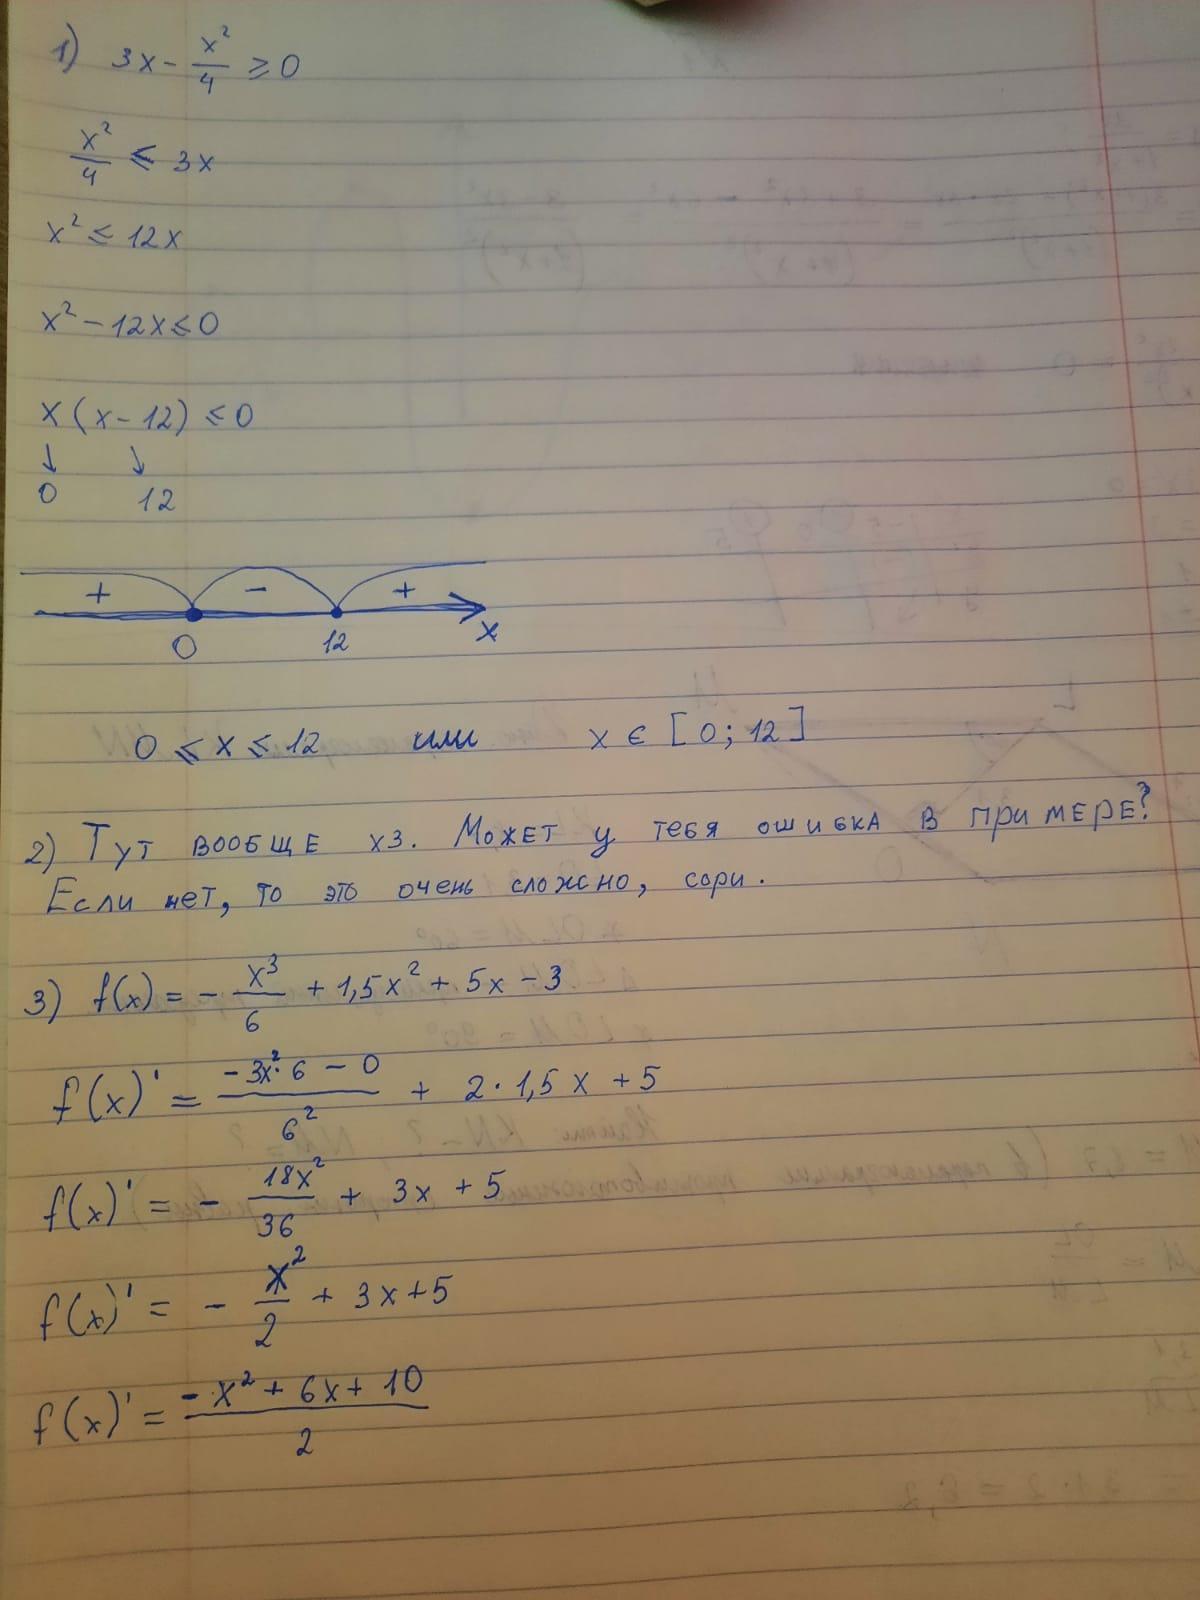 1) 3x - x²/4 ≥ 0
x²/4 ≤ 3x
x² ≤ 12x
x² - 12x ≤ 0
x(x - 12) ≤ 0
↓ ↘
0 12
+ - +
0 12 x
0 ≤ x ≤ 12 или x ∈ [0; 12]
2) Тут вообще х3. Может у тебя ошибка в примере?
Если нет, то это очень сложно, сори.
3) f(x) = - x³/6 + 1,5x² + 5x - 3
f(x)' = (-3x²·6 - 0)/6² + 2·1,5x + 5
f(x)' = - 18x²/36 + 3x + 5
f(x)' = - x²/2 + 3x + 5
f(x)' = (-x² + 6x + 10)/2